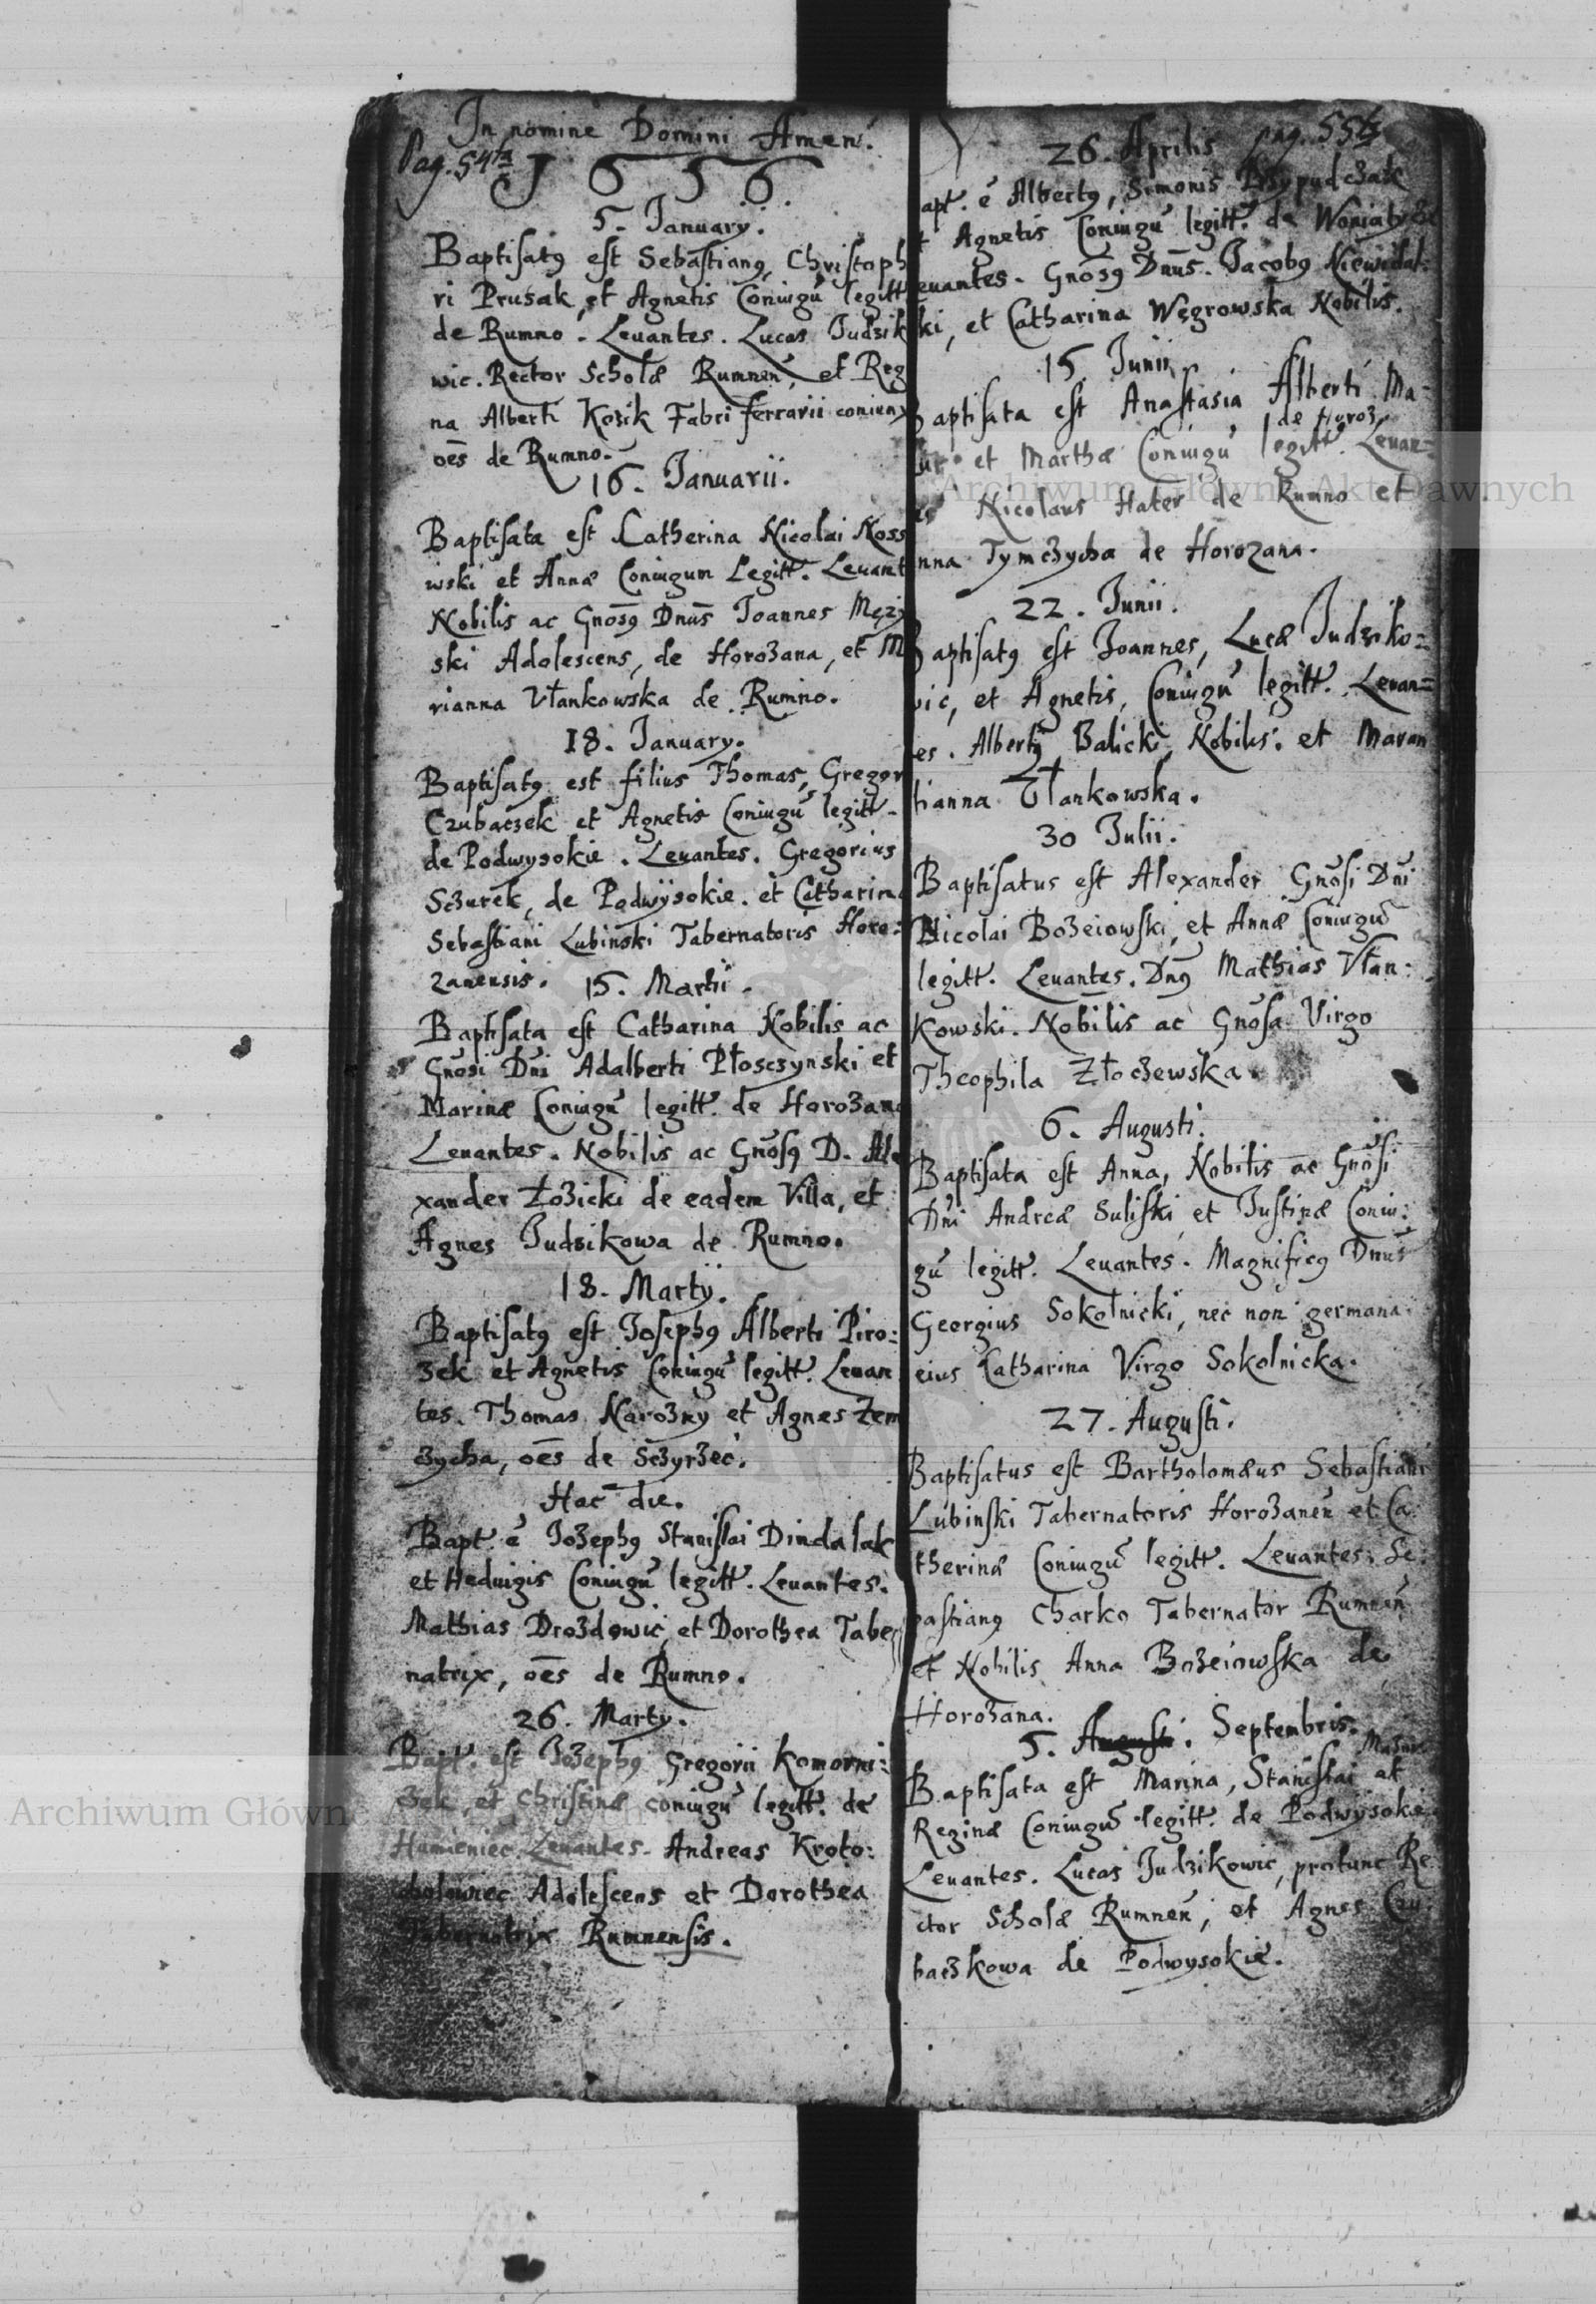 In nomine Domini Amen.
Pag. 54ta
1656.
5. Januarij.
Baptisatꝯ est Sebastianꝯ, Christoph
ri Prusak, et Agnetis Coniugū legitt
de Rumno. Leuantes. Lucas Judzik
wic. Rector Scholæ Rumnen̄, et Reg
na Alberti Kozik Fabri ferrarii coniunx
oēs de Rumno.
16. Januarii.
Baptisata est Catherina Nicolai Noss
iwski et Annæ Coniugum Legitt. Leuant
Nobilis ac Gnōsꝯ Dnūs Joannes Męży
ski Adolescens, de Horoʒana, et M
rianna Vłankowska de Rumno.
18. January.
Baptisatꝯ est filius Thomas, Gregor
Czubaczek et Agnetis Coniugū legitt.
de Podwysokie. Leuantes. Gregorius
Sczurek, de Podwÿsokie. et Catharina
Sebastiani Lubinski Tabernatoris Horo:
zanensis.
15. Martii.
Baptisata est Catharina Nobilis ac
Gnōsi Dn̄i Adalberti Płosczynski et
Marinæ Coniugū legitt. de Horoʒana
Leuantes. Nobilis ac Gnōsꝯ D. Ale
xander Łoʒicki de eadem Villa, et
Agnes Judzikowa de Rumno.
18. Martÿ.
Baptisatꝯ est Josephꝯ Alberti Piro:
ʒek et Agnetis Coniugū legitt. Leuan
tes. Thomas Naroʒny et Agnes Zem
ʒycha, oēs de Sczyrʒec.
Hac die.
Bapt. ē Joʒephꝯ Stanislai Dindalak
et Heduigis Coniugū legitt. Leuantes.
Mathias Droʒdowic, et Dorothea Taber
natrix, oēs de Rumno.
26. Marty.
Bapt. est Joʒephꝯ Gregorii Komorni:
ʒek, et Christinæ coniugū legitt. de
Humieniec. Leuantes. Andreas Kroto:
cholowiec Adolescens et Dorothea
Tabernatrix Rumnensis.
pag. 55ta
26. Aprilis
apt. ē Albertꝯ, Simonis Prypudczak
t Agnetis Coniugū legitt. de
euantes. Gnōsꝯ Dnūs. Jacobꝯ Niewidal:
ki, et Catharina Węgrowska Nobilis.
15 Junii
Baptisata est Anastasia Alberti Ma-
de Horoʒ.
ur et Marthæ Coniugū legitt. Leuan=
es Nicolaus Hater de Rumno et
nna Tymcʒycha de Horozana.
22. Junii.
Baptisatꝯ est Joannes, Lucæ Judziko=
wic, et Agnetis, Coniugū legitt. Leuan=
es. Albertꝯ Balicki, Nobilis. et Maran
tianna Vłankowska.
30 Julii.
Baptisatus est Alexander Gnōsi Dn̄i
Nicolai Boʒeiowski, et Annæ Coniugū
legitt. Leuantes. Dnꝯ Mathias Vłan:
kowski. Nobilis ac Gnōsa Virgo
Theophila Złocʒewska.
6. Augusti.
Baptisata est Anna, Nobilis ac Gnōsi
Dn̄i Andreæ Suliski et Justinæ Coniu:
gū legitt. Leuantes. Magnificꝯ Dnūs
Georgius Sokolnicki, nec non germana
eius Catharina Virgo Sokolnicka.
27. Augusti.
Baptisatus est Bartholomæus Sebastiani
Lubinski Tabernatoris Horoʒanen̄ et Ca:
therinæ Coniugū legitt. Leuantes. Se:
bastianꝯ Charko Tabernator Rumnen̄
et Nobilis Anna Boʒeiowska de
Horoʒana.
5. Augusti. Septembris.
Mazur
Baptisata est Marina, Stanislai et
Reginæ Coniugū legitt. de Podwysokie
Leuantes. Lucas Judzikowic, protunc Re
ctor Scholæ Rumnen̄, et Agnes Czu
baczkowa de Podwysokie.
Archiwum Główne Akt Dawnych
Archiwum Główne